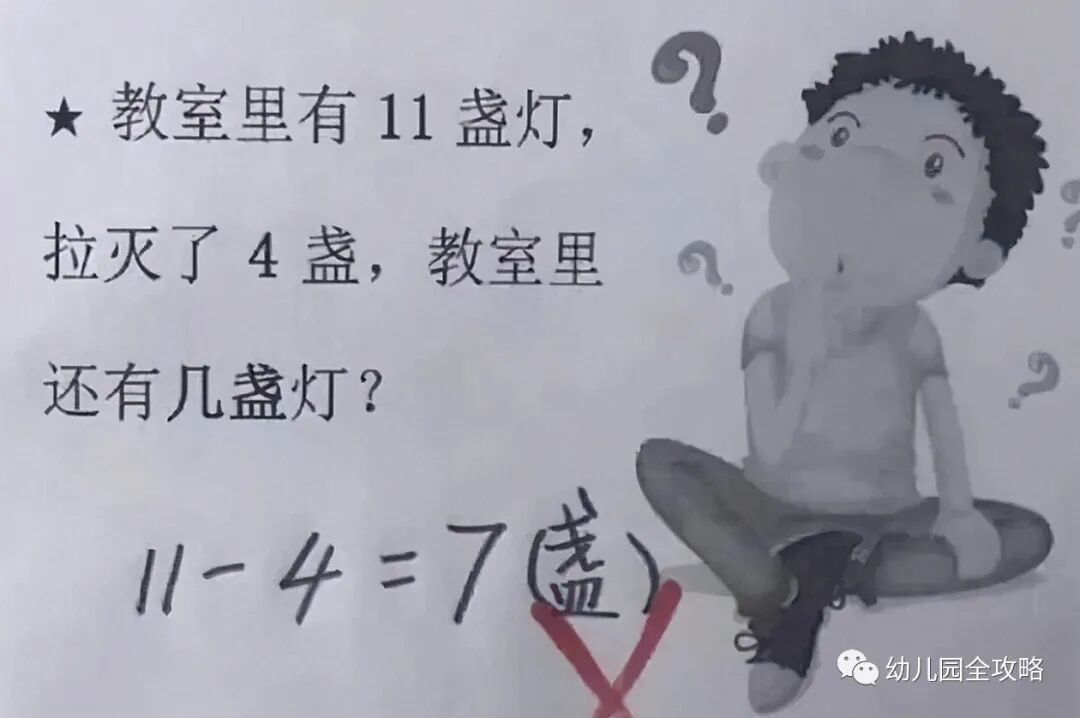 ★ 教室里有 11 盏灯，
拉灭了 4 盏，教室里
还有几盏灯？
11-4=7(盏)
幼儿园全攻略